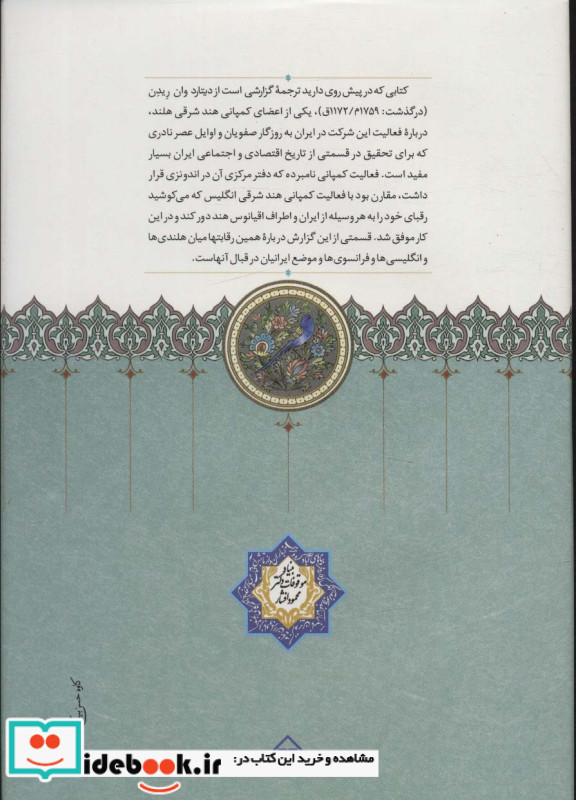 کتابی که در پیش روی دارید ترجمهٔ گزارشی است از دیتارد وان ریدن
(درگذشت: ۱۷۵۹م/۱۱۷۲ق)، یکی از اعضای کمپانی هند شرقی هلند،
دربارهٔ فعالیت این شرکت در ایران به روزگار صفویان و اوایل عصر نادری
که برای تحقیق در قسمتی از تاریخ اقتصادی و اجتماعی ایران بسیار
مفید است. فعالیت کمپانی نامبرده که دفتر مرکزی آن در اندونزی قرار
داشت، مقارن بود با فعالیت کمپانی هند شرقی انگلیس که می‌کوشید
رقبای خود را به هر وسیله از ایران و اطراف اقیانوس هند دور کند و در این
کار موفق شد. قسمتی از این گزارش دربارهٔ همین رقابتها میان هلندی‌ها
و انگلیسی‌ها و فرانسوی‌ها و موضع ایرانیان در قبال آنهاست.
بنیاد
موقوفات دکتر
محمود افشار
مشاهده و خرید این کتاب در:
idebook.ir